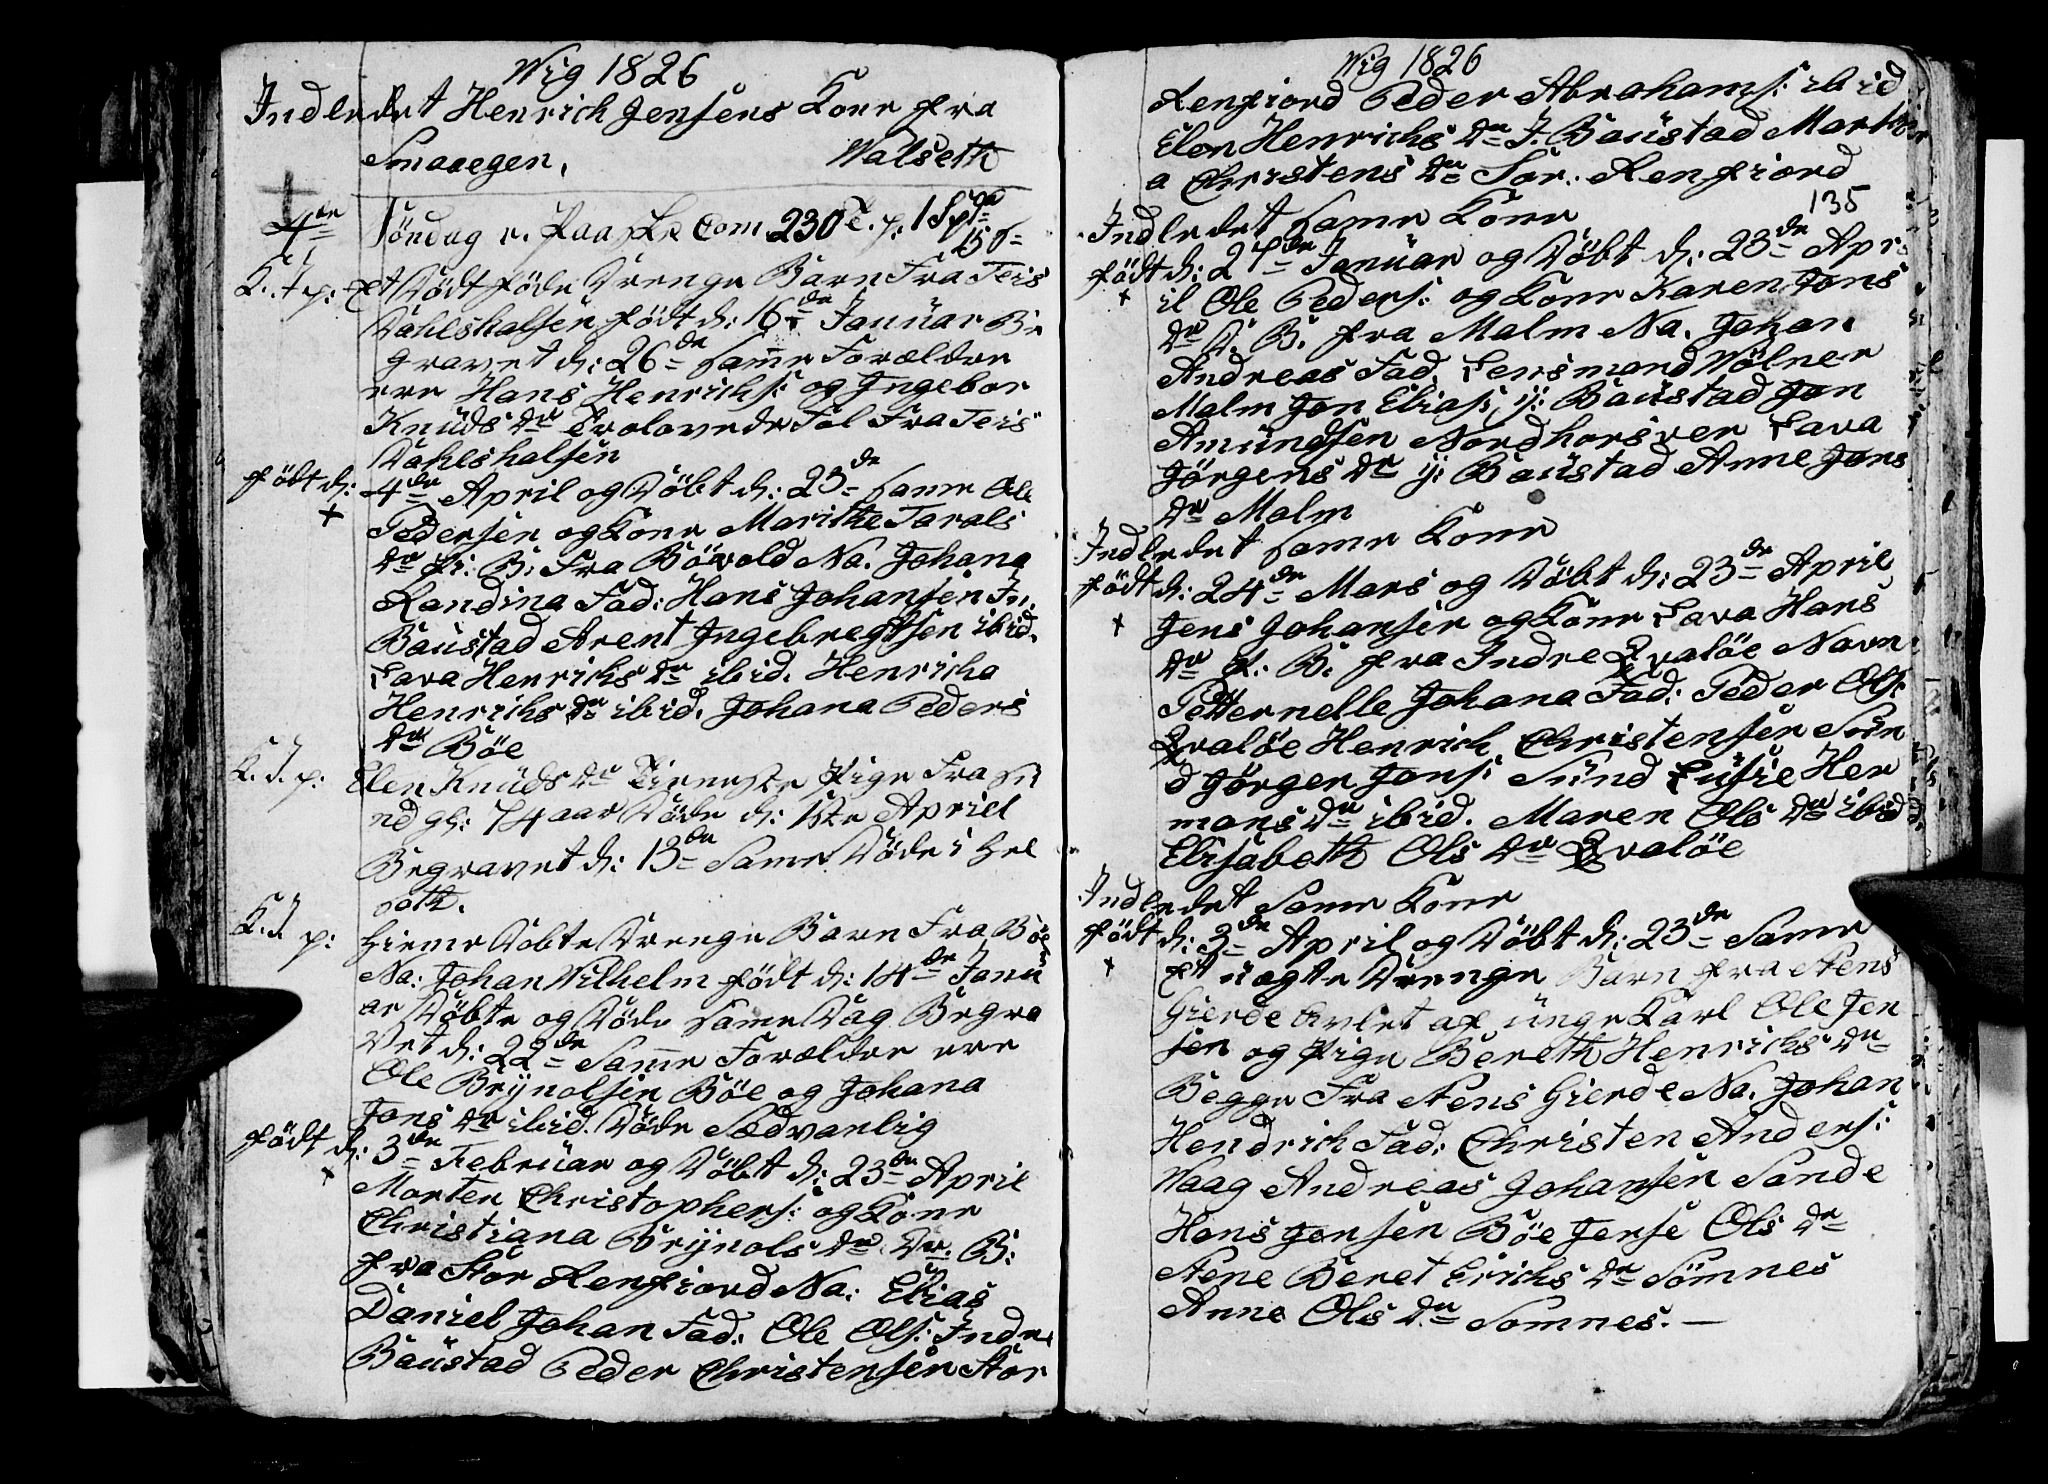 Wig 1826
Indledet Henrich Jensens Kone fra
Smaaegen,
Walseth
4de Söndag e. Paaske Com 230 p: 1 Spd
15 s
K. J. p: et Dödt föde Drenge Barn Fra Teis
Dahlshalsen födt d: 16de Januar Be
gravet d: 26de Same Forældre
ere Hans Henrichs: og Ingebor
Knüds Dr Trolovede Fol Fra Teis
Dahlshalsen
födt d: 4de April og Döbt d: 23de Same Ole
Pedersen og Kone Marithe Tarals
Dr fr: B: Fra Bövold Na. Johana
Randina Fad: Hans Johansen In.
Baustad Arent Ingebregtsen ibid.
Sara Henrichs Dr ibid. Henricha
Henrichs Dr ibid. Johana Peders
Dr Böe
K. J. p: Elen Knüds Dr Tieneste Pige Fra Sü
nd gl: 74 aar Döde d: 1ste Apriel
Begravet d: 13de Same Döde i Hel
soth.
K. J. p: Hieme Döbte Drenge Barn Fra Böe
Na: Johan Wilhelm födt d: 14de Janu
ar Döbte og Döde Same Dag Begra
Vet d: 22de Same Forældre ere
Ole Brynolsen Böe og Johana
Jons Dr ibid. Döde Sædvanlig
födt d: 3de Februar og Döbt d: 23de April
Morten Christophers: og Kone
Christiana Brynols Dr Dr. B:
fra Stor Lenfiord Na: Elias
Daniel Johan Fad: Ole Ols: Indre
Baustad Peder Christensen Stor
Wig 1826
Lenfiord Peder Abrahams: ibid
Elen Henrichs Dr I. Baustad Marth
a Christens Dr Stor: Lenfiord
135
Indledet Same Kone
födt d: 27de Januar og Döbt d: 23de Apr
il Ole Peders: og Kone Karen Jons
Dr D. B. fra Malm Na. Johan
Andreas Fad. Lensmand Wölner
Malm Jon Elias: y: Baustad Jon
Amundsen Nordhorsver Sara
Jörgens Dr y: Baustad Anne Jons
Dr Malm
Indledet Same Kone
födt d: 24de Mars og Döbt d: 23de April
Jens Johansen og Kone Sara Hans
Dr f. B. fra Indre Qvalöe Navn
Petternelle Johana Fad: Peder Ols:
Qvalöe Henrich Christensen Sün
d Jörgen Jons: Sünd Lusie Her
mans Dr ibid. Maren Ols Dr ibid.
Elisabeth Ols Dr Qvalöe
Indledet Same Kone
födt d: 3de April og Döbt d: 23de Same
et uægte Drenge Barn fra Stens
Gierde Avlet af unge Karl Ole Jen
sen og Pige Bereth Henrichs Dr
Begge Fra Stens Gierde Na. Johan
Hendrich Fad: Christen Anders:
Waag Andreas Johansen Sande
Hans Jensen Böe Jense Ols Dr
Stene Beret Erichs Dr Sömnes
Anne Ols Dr Somnes. —